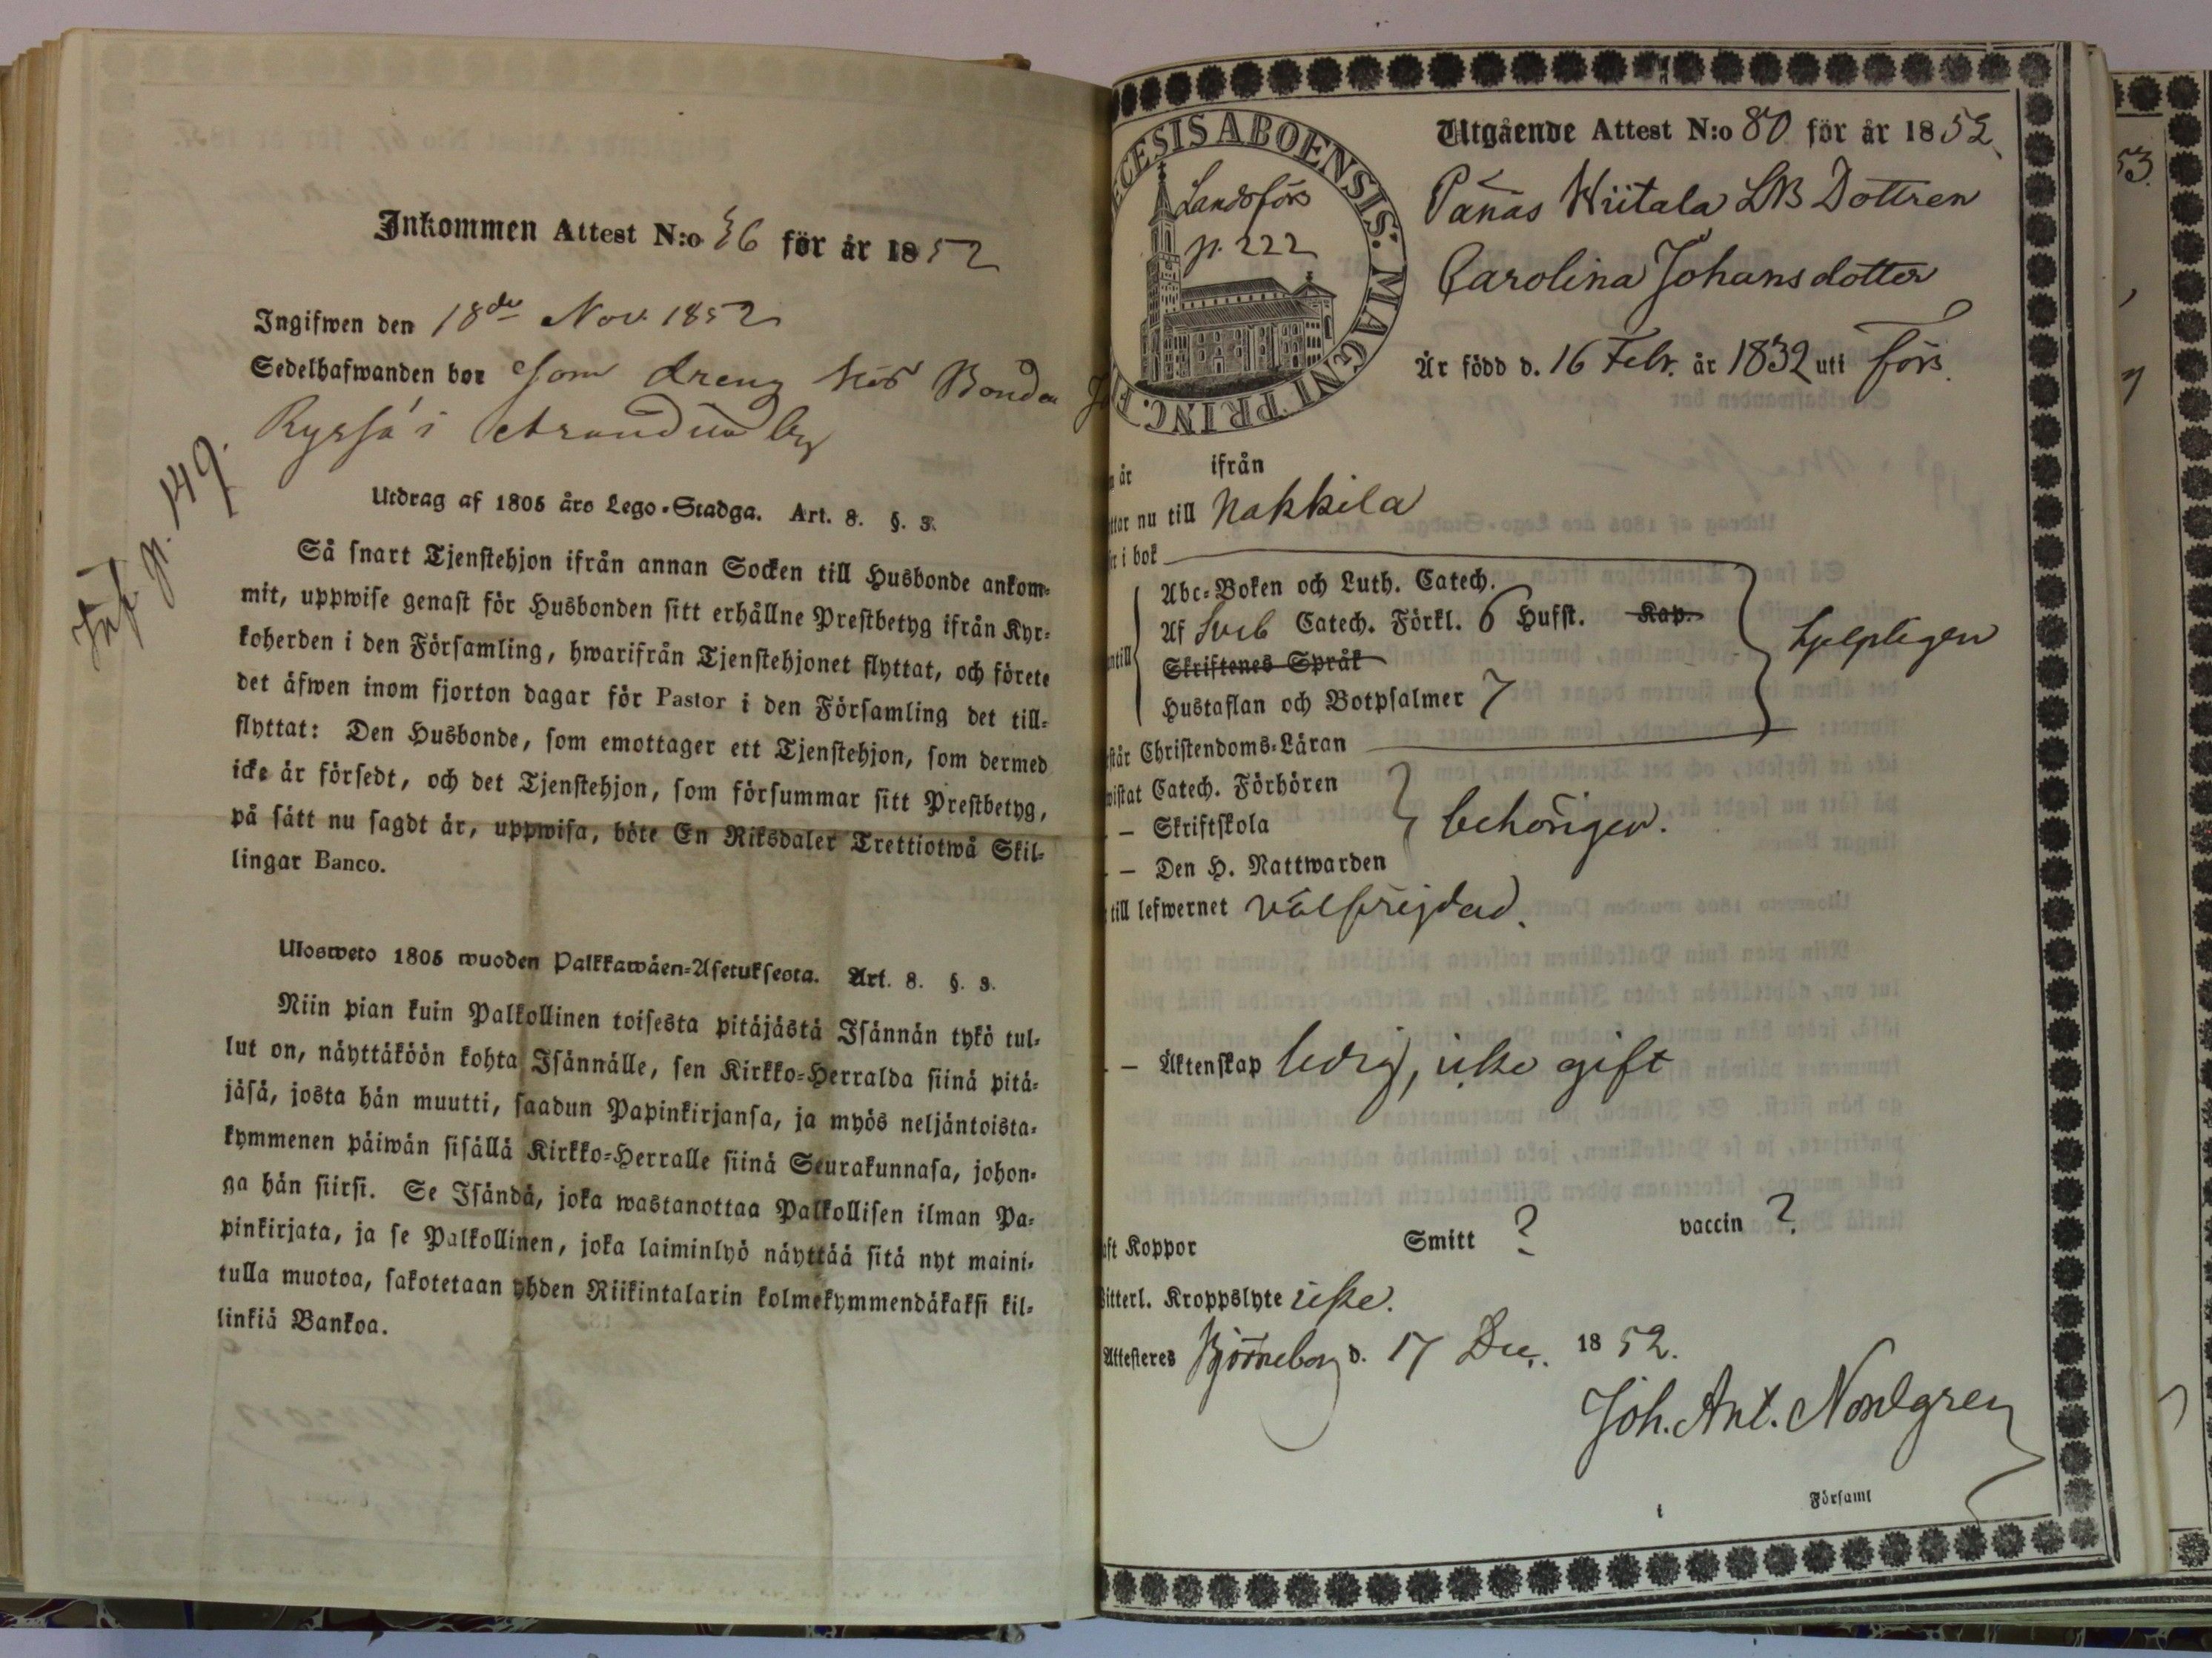 Inkommen Attest N:o 36 för år 1852
Ingifwen den 18de Nov. 1852
Sedelhafwanden bor som dreng hos Bonden
Ryssä i by
Inf. p. 149.
Utdrag af 1805 års Lego-Stadga. Art. 8. §. 3.
Så snart Tjenstehjon ifrån annan Socken till Husbonde ankom-
mit, uppwise genast för Husbonden sitt erhållne Prestbetyg ifrån Kyr-
koherden i den Församling, hwarifrån Tjenstehjonet flyttat, och förete
det äfwen inom fjorton dagar för Pastor i den Församling det till-
flyttat: Den Husbonde, som emottager ett Tjenstehjon, som dermed
icke är försedt, och det Tjenstehjon, som försummar sitt Prestbetyg,
på sätt nu sagdt är, uppwisa, böte En Riksdaler Trettiotwå Skil-
lingar Banco.
Ulosweto 1805 wuoden Palkkawäen-Asetuksesta. Art. 8. §. 3.
Niin pian kuin Palkollinen toisesta pitäjästä Isännän tykö tul-
lut on, näyttäköön kohta Isännälle, sen Kirkko-Herralda siinä pitä-
jäsä, josta hän muutti, saadun Papinkirjansa, ja myös neljäntoista-
kymmenen päiwän sisällä Kirkko-Herralle siinä Seurakunnasa, johon-
ga hän siirsi. Se Isändä, joka wastanottaa Palkollisen ilman Pa-
pinkirjata, ja se Palkollinen, joka laiminlyö näyttää sitä nyt maini-
tulla muotoa, sakotetaan yhden Riikintalarin kolmekymmendäkaksi kil-
linkiä Bankoa.
ECESIS ABOENSIS. MAGNI PRINC. F
Landsförs
p. 222
Utgående Attest N:o 80 för år 1852
Pänäs Wiitala LB Dottren
Carolina Johansdotter
Är född d. 16 Febr. år 1832 uti förs.
är ifrån
ttar nu till Nakkila
r i bok
ntill
Abc-Boken och Luth. Catech.
Af Sveb Catech. Förkl. 6 Hufst. Kap.
Skriftenes Språk
Hustaflan och Botpsalmer 7
hjelpligen
står Christendoms-Läran
wistat Catech. Förhören
– – Skriftskola
– – Den H. Nattwarden
behörigen.
till lefwernet välfrejdad.
– – Äktenskap ledig, icke gift
aft Koppor Smitt ? vaccin ?
Witterl. Kroppslyte icke.
Attesteres Björneborg d. 17 Dec. 1852.
Joh. Ant. Nordgren
i Församl
53.